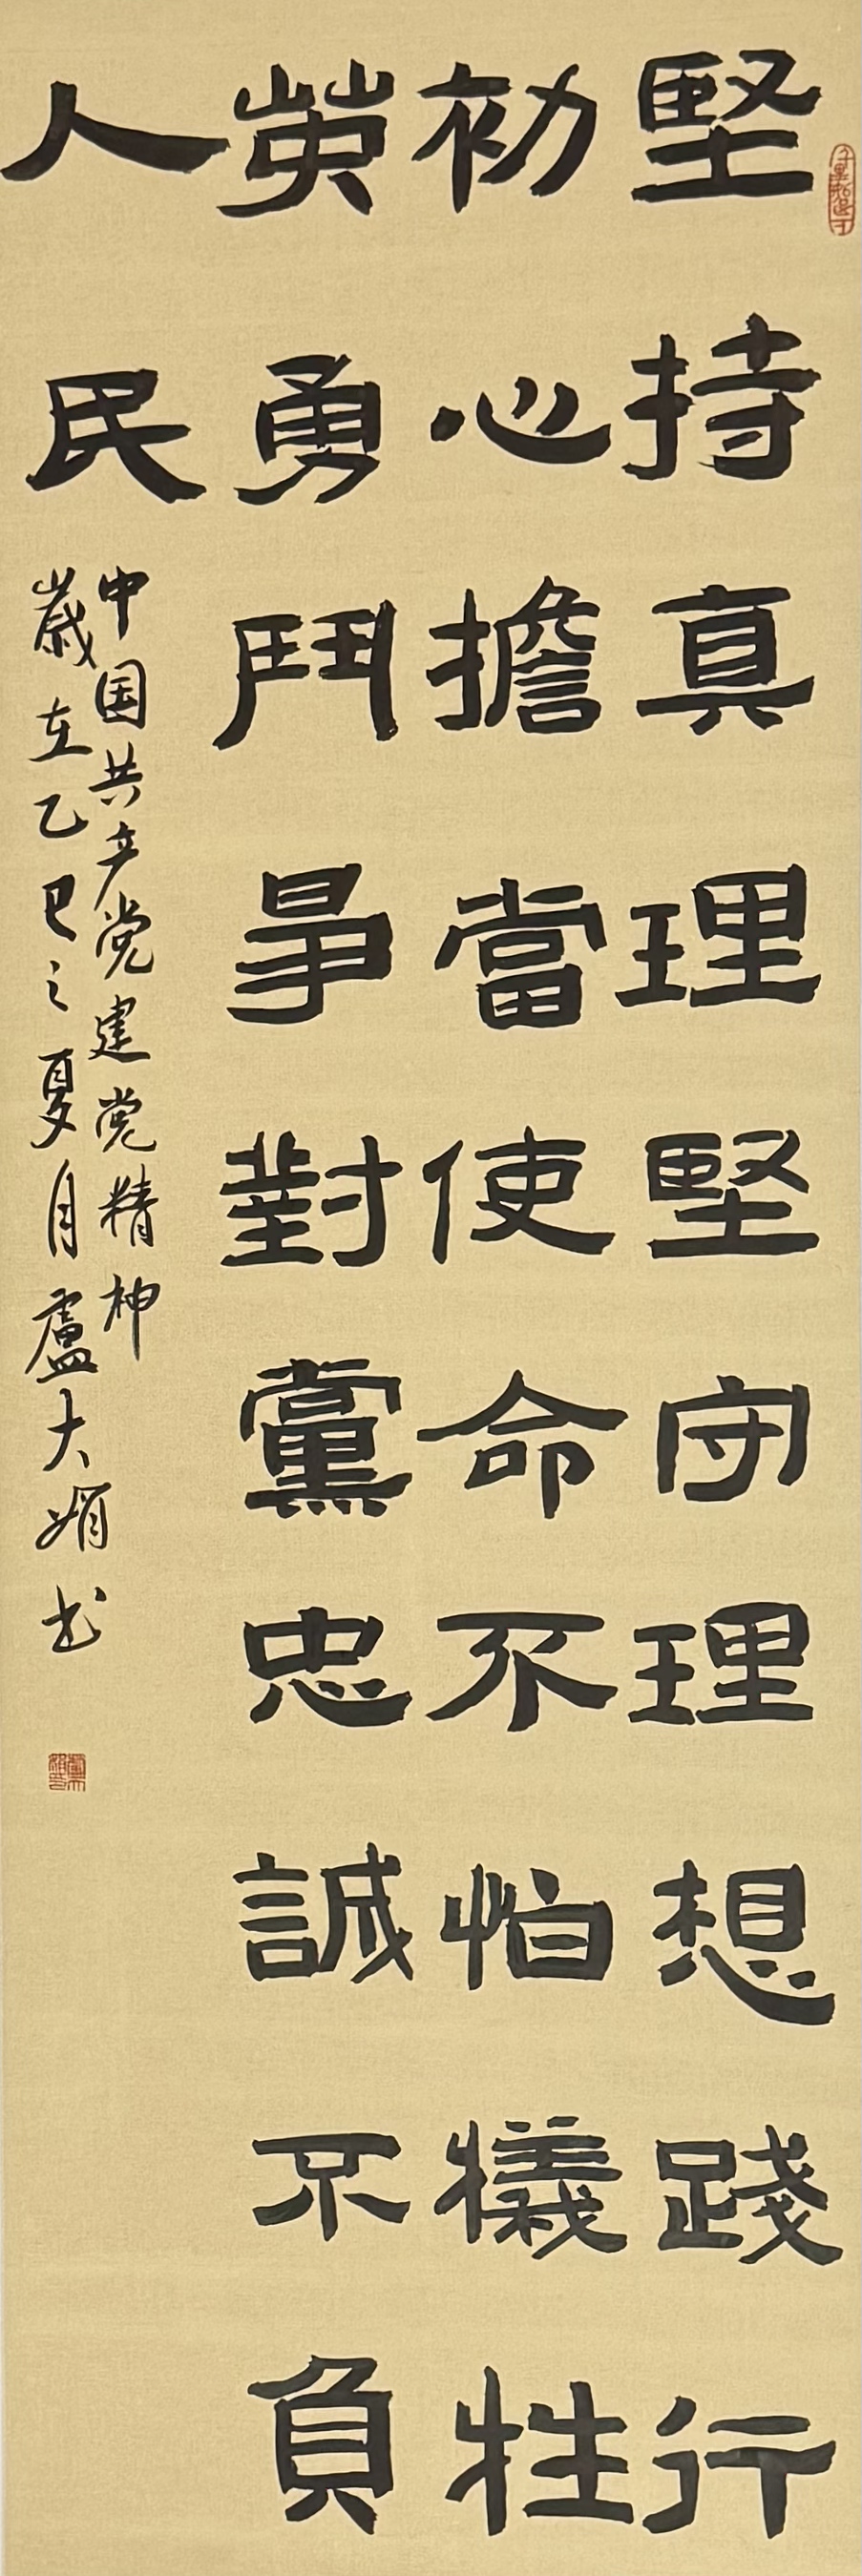 堅持真理堅守理想踐行
初心擔當使命不怕犧牲
英勇鬥爭對黨忠誠不負
人民
中国共产党建党精神
歲在乙巳之夏月盧大媚书